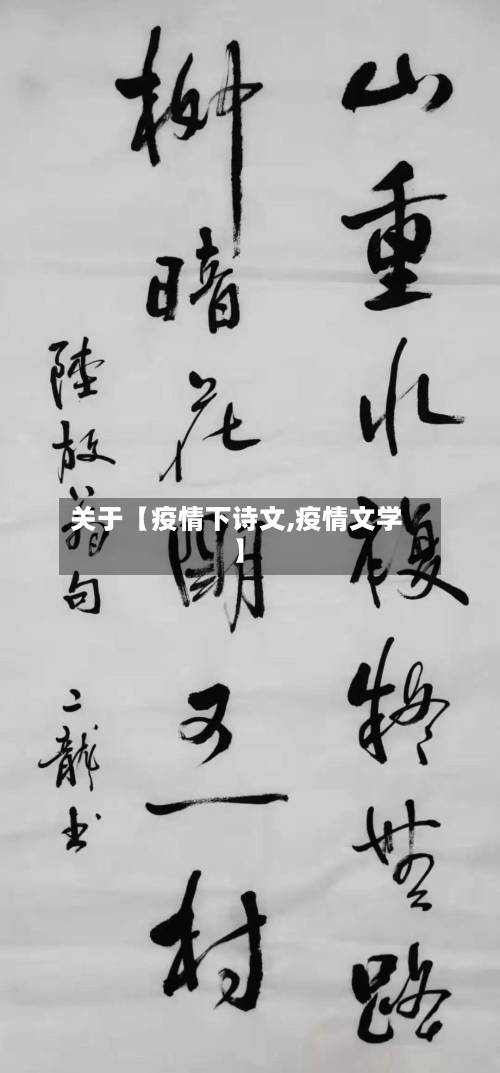 山重水複疑無路
柳暗花明又一村
陸放翁句 二龍书
关于【疫情下诗文,疫情文学
】